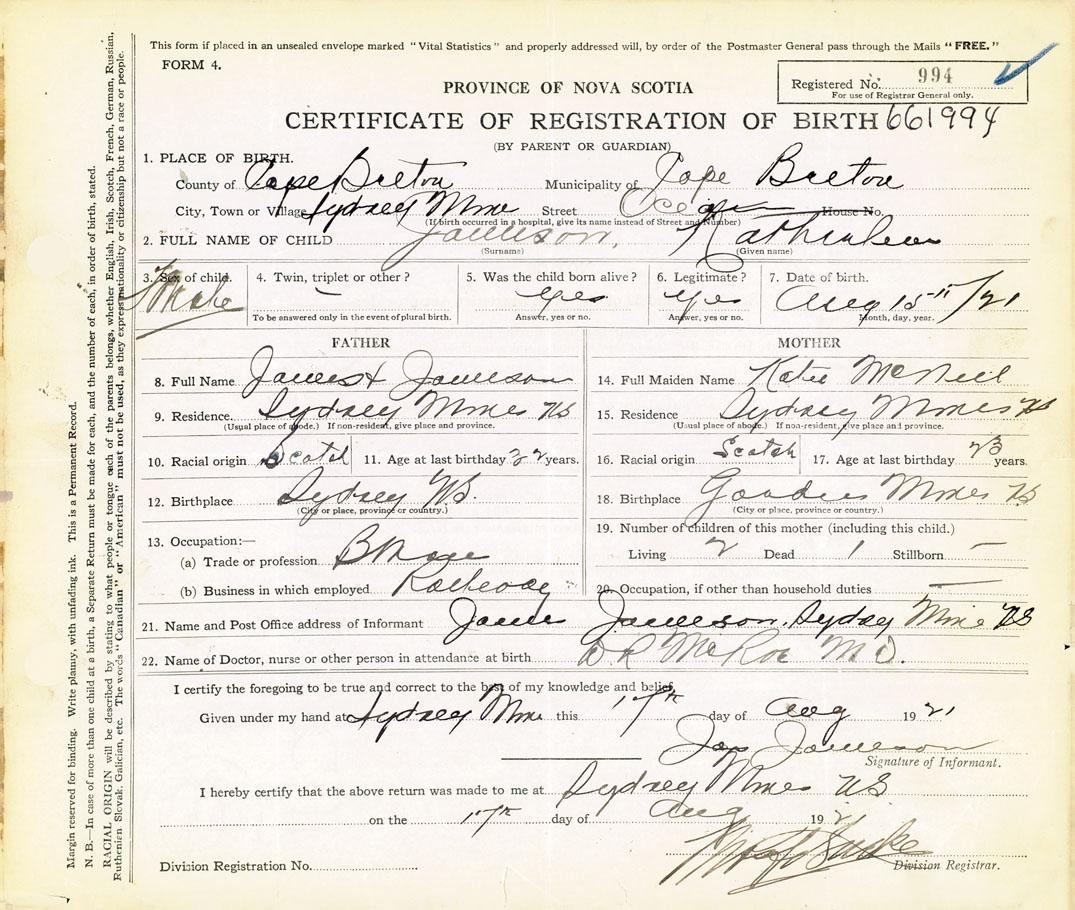 This form if placed in an unsealed envelope marked "Vital Statistics" and properly addressed will, by order of the Postmaster General pass through the Mails "FREE."
FORM 4.
Registered No. 994
For use of Registrar General only.
PROVINCE OF NOVA SCOTIA
CERTIFICATE OF REGISTRATION OF BIRTH 661994
(BY PARENT OR GUARDIAN)
1. PLACE OF BIRTH.
County of Cape Breton Municipality of Cape Breton
City, Town or Village Sydney Mine Street Ocean House No.
(If birth occurred in a hospital, give its name instead of Street and Number)
2. FULL NAME OF CHILD Jamieson,
(Surname) (Given name)
3. Sex of child. 4. Twin, triplet or other? 5. Was the child born alive? 6. Legitimate? 7. Date of birth.
Male — Yes Yes Aug 15th/21
To be answered only in the event of plural birth. Answer, yes or no. Answer, yes or no. Month, day, year.
FATHER MOTHER
8. Full Name James Jamieson 14. Full Maiden Name Katie McNeil
9. Residence. Sydney Mines NS 15. Residence Sydney Mines NS
(Usual place of abode.) If non-resident, give place and province. (Usual place of abode.) If non-resident, give place and province.
10. Racial origin Scotch 11. Age at last birthday 32 years. 16. Racial origin Scotch 17. Age at last birthday 23 years.
12. Birthplace Sydney NS. 18. Birthplace Mines NS
(City or place, province or country.) (City or place, province or country.)
13. Occupation:— 19. Number of children of this mother (including this child.)
(a) Trade or profession Living 2 Dead 1 Stillborn —
(b) Business in which employed Railway 20. Occupation, if other than household duties —
21. Name and Post Office address of Informant James Jamieson. Sydney Mine NS
22. Name of Doctor, nurse or other person in attendance at birth D R McRae M.D.
I certify the foregoing to be true and correct to the best of my knowledge and belief.
Given under my hand at Sydney Mine this 17th day of Aug 1921
Jas Jamieson
Signature of Informant.
I hereby certify that the above return was made to me at Sydney Mines NS
on the 17th day of Aug 192
Division Registration No. Division Registrar.
Margin reserved for binding. Write plainly, with unfading ink. This is a Permanent Record.
N. B.—In case of more than one child at a birth, a Separate Return must be made for each, and the number of each, in order of birth, stated.
RACIAL ORIGIN will be described by stating to what people or tongue each of the parents belongs, whether English, Irish, Scotch, French, German, Russian,
Ruthenian, Slovak, Galician, etc. The words "Canadian" or "American" must not be used, as they express nationality or citizenship but not a race or people.